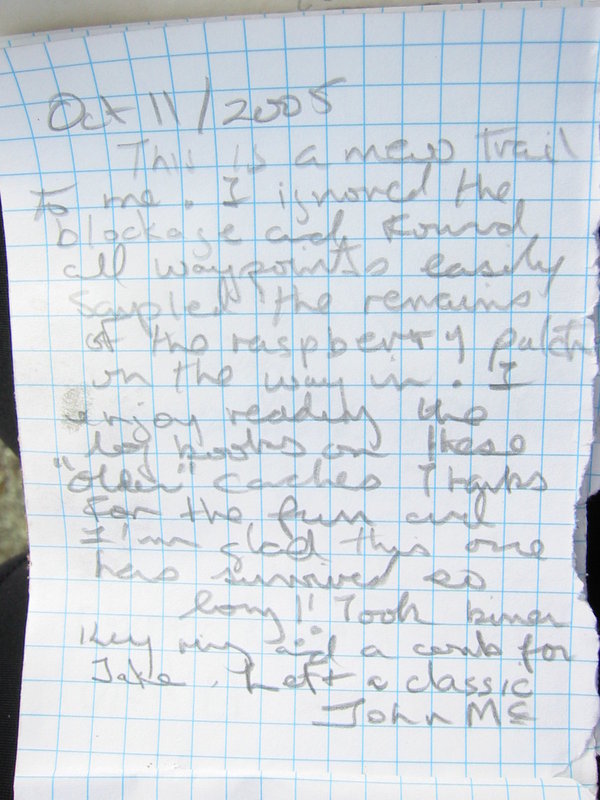 Oct 11/2005
This is a new trail
to me. I ignored the
blockage and found
all waypoints easily
Sampled the remains
of the raspberry patch
on the way in. I
enjoy reading the
log books on these
"older" caches Thanks
for the fun and
I'm glad this one
has survived so
long!! Took biner
Key ring and a comb for
Jake. Left a classic
John Mc